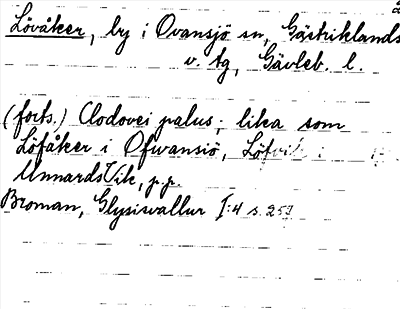 2
Lövåker, by i Ovansjö sn, Gästriklands
v. tg, Gävleb. l.
(forts.) Clodovei palus; lika som
Löfåker i Ofwansiö, i
Unnards Vik, p.p.
Broman, Glysisvallur I:4 s. 259